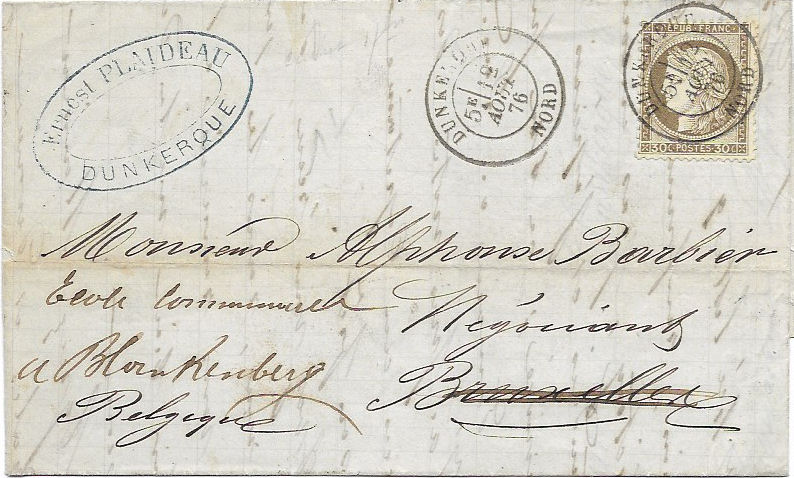 Ernest PLAIDEAU
DUNKERQUE
DUNKERQUE
5E
12
AOUT
76
NORD
DUNKERQUE
5E
AOUT
76
NORD
REPUB. FRANC.
30c POSTES 30c
Monsieur Alphonse Barbier
Ecole Communale
Négociant
a Blankenberg
Bruxelles
Belgique